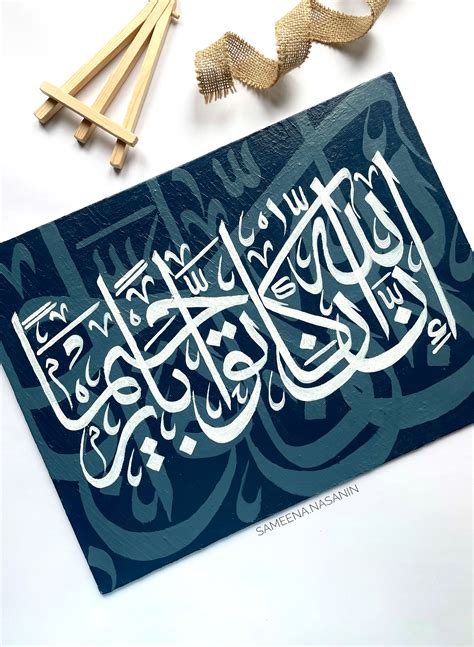 إِنَّ اللَّهَ كَانَ تَوَّابًا رَّحِيمًا
SAMEENA.NASANIN